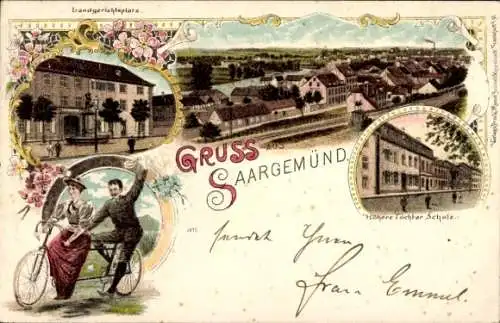 Landgerichtsplatz.
GRUSS AUS
SAARGEMÜND
Höhere Töchter Schule.
sendet Ihnen
Frau Emmel.